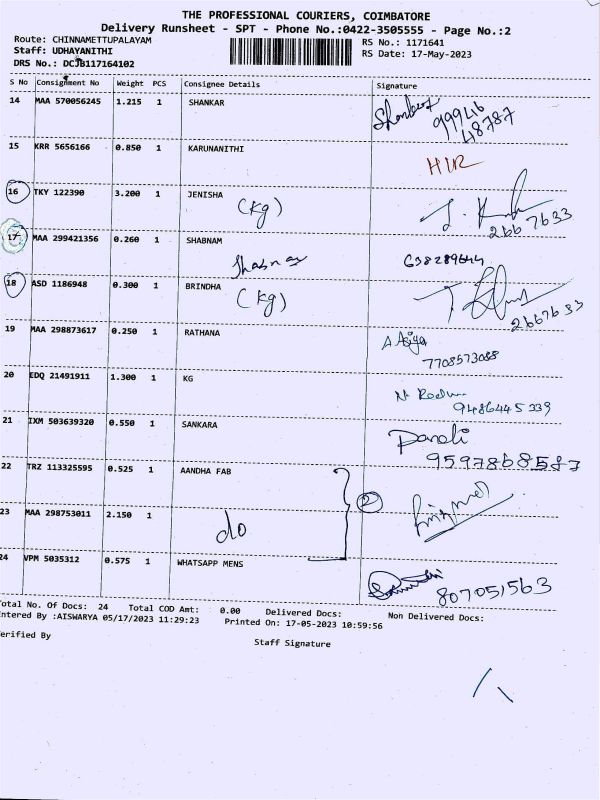 THE PROFESSIONAL COURIERS, COIMBATORE
Delivery Runsheet - SPT - Phone No.:0422-3505555 - Page No.:2
Route: CHINNAMETTUPALAYAM
Staff: UDHAYANITHI
DRS No.: DCJB117164102
RS No.: 1171641
RS Date: 17-May-2023
S No Consignment No Weight PCS Consignee Details Signature
14 MAA 570056245 1.215 1 SHANKAR
99946
48787
15 KRR 5656166 0.850 1 KARUNANITHI H/R
16 TKY 122390 3.200 1 JENISHA
(Kg)
2667633
17 MAA 299421356 0.260 1 SHABNAM
Shabnam 638289644
18 ASD 1186948 0.300 1 BRINDHA
(Kg)
2667633
19 MAA 298873617 0.250 1 RATHANA
A Asiya
7708573088
20 EDQ 21491911 1.300 1 KG
9486445339
21 IXM 503639320 0.550 1 SANKARA
9597868587
22 TRZ 113325595 0.525 1 AANDHA FAB
2
23 MAA 298753011 2.150 1
do
24 VPM 5035312 0.575 1 WHATSAPP MENS
807051563
Total No. Of Docs: 24 Total COD Amt: 0.00 Delivered Docs: Non Delivered Docs:
ntered By :AISWARYA 05/17/2023 11:29:23 Printed On: 17-05-2023 10:59:56
erified By Staff Signature